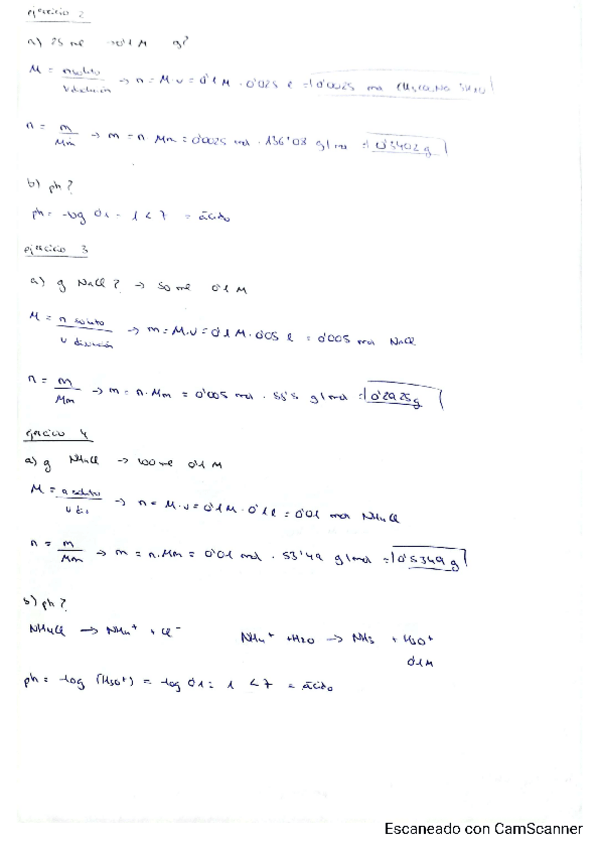 ejercicio 2
a) 25 ml → 0'1 M g?
M = n soluto / V disolución → n = M·V = 0'1 M · 0'025 l = 0'0025 mol
n = m / Mm → m = n · Mm = 0'0025 mol · 136'08 g/mol = 0'3402 g
b) ph?
ph = -log 0'1 = 1 < 7 = ácido
ejercicio 3
a) g NaCl? → 50 ml 0'1 M
M = n soluto / V disolución → m = M·V = 0'1 M · 0'05 l = 0'005 mol NaCl
n = m / Mm → m = n·Mm = 0'005 mol · g/mol = 0'2925 g
ejercicio 4
a) g NH4Cl → 100 ml 0'1 M
M = n soluto / V dis → n = M·V = 0'1 M · 0'1 l = 0'01 mol NH4Cl
n = m / Mm → m = n·Mm = 0'01 mol · 53'49 g/mol = 0'5349 g
b) ph?
NH4Cl → NH4+ + Cl- NH4+ + H2O → NH3 + H3O+
0'1 M
ph = -log (H3O+) = -log 0'1 = 1 < 7 = ácido
Escaneado con CamScanner